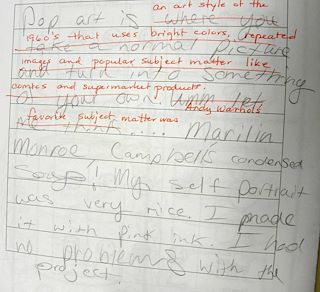 an art style of the
Pop art is where you
1960's that uses bright colors, repeated
take a normal picture
images and popular subject matter like
and turn in o something
comics and supermarket products.
of your own. Umm let
Andy Warhols
favorite subject matter was
me think.... Marilin
Monroe Campbell's condensed
Soups! My self portrait
was very nice. I made
it with pink ink. I had
no problems with the
project.